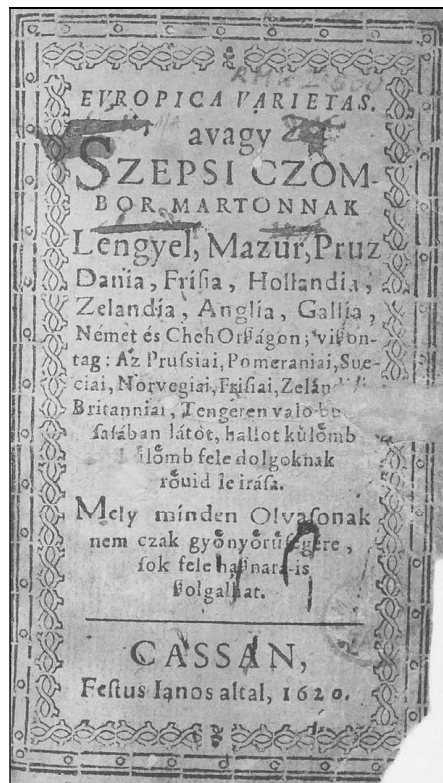 EVROPICA VARIETAS.
avagy
SZEPSI CZOM-
BOR MARTONNAK
Lengyel, Mazur, Pruz
Dania, Frisia, Hollandia,
Zelandia, Anglia, Gallia,
Német és Cheh Orßágon; vißon-
tag: Az Prusſiai, Pomeraniai, Sue-
ciai, Norvegiai, Friſiai,
Britanniai, Tengeren valo
ſaſában látót, hallot kuͤloͤmb
kuͤloͤmb fele dolgoknak
roͤuid le iráſa.
Mely minden Olvaſonak
nem czak gyoͤnyoͤruͤſegere,
ſok fele haßnara-is
ßolgalhat.
CASSAN,
Feſtus Ianos altal, 1620.